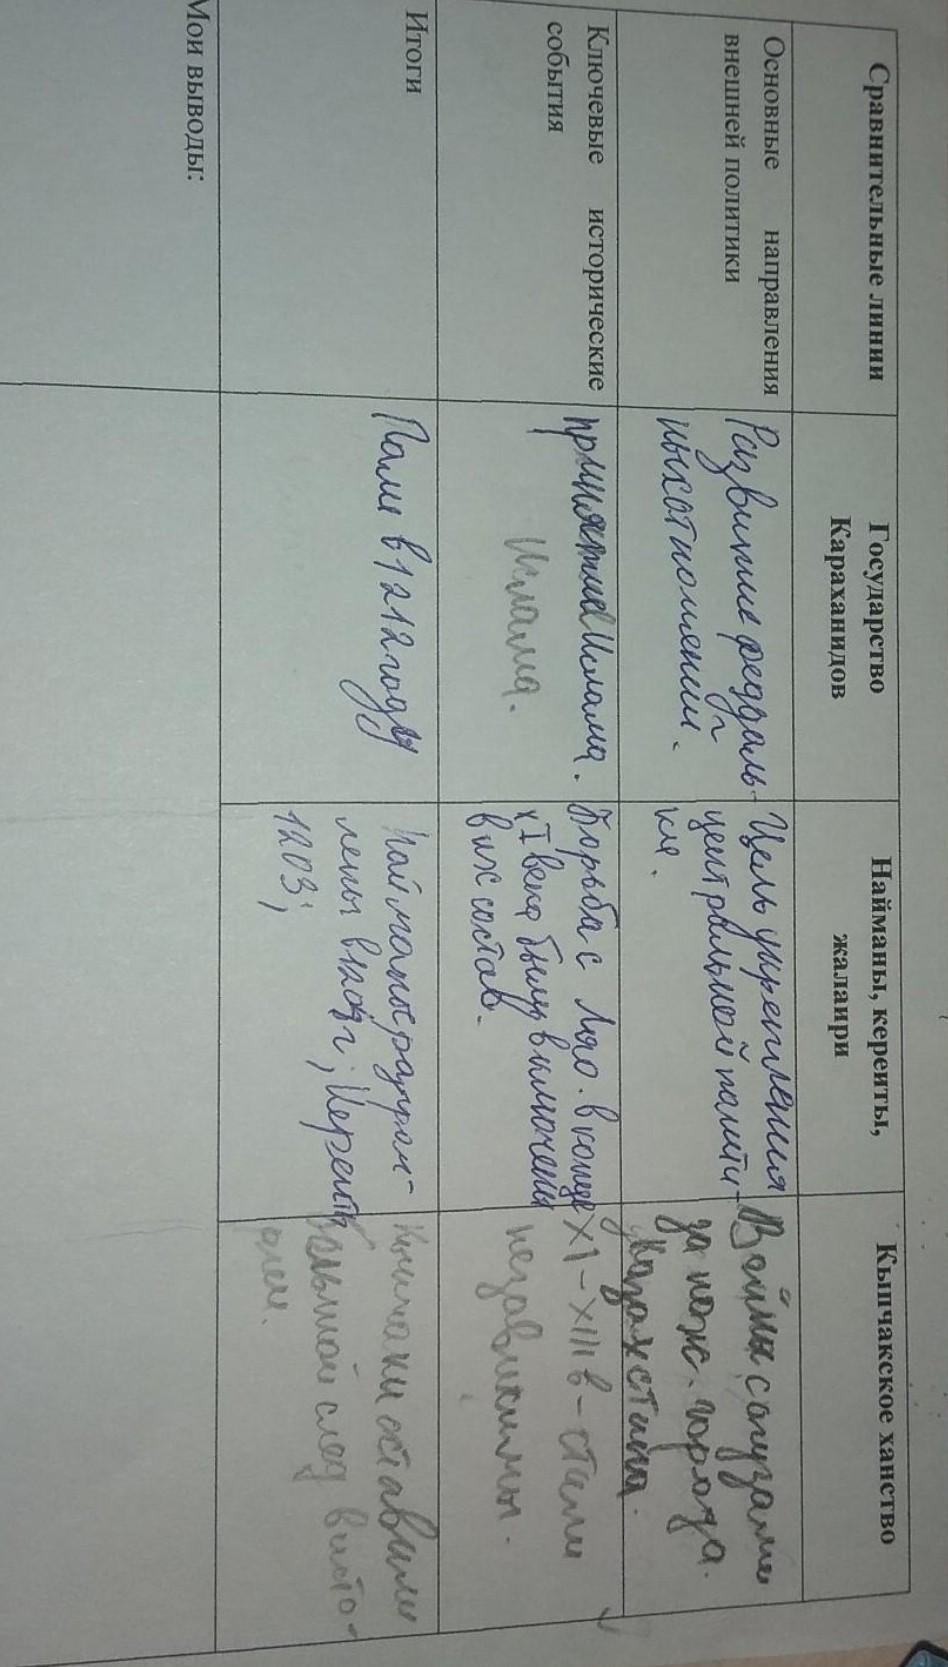 Сравнительные линии
Государство
Караханидов
Найманы, кереиты,
жалаири
Кыпчакское ханство
Основные направления
внешней политики
Развитие феодаль-
ных отношении.
Цель укрепления
центральной полити-
ки.
Войны с огузами
за юж. города
Казахстана.
Ключевые исторические
события
принятие Ислама.
Ислама.
Борьба с Ляо. в конце
XI века были включены
в их состав.
XI-XIII в - стали
независимы.
Итоги
Пали в 1212 году
Найманы разгром-
лены в 1204 г, Кереиты
1203,
Кипчаки оставили
большой след в исто-
рии.
Мои выводы: